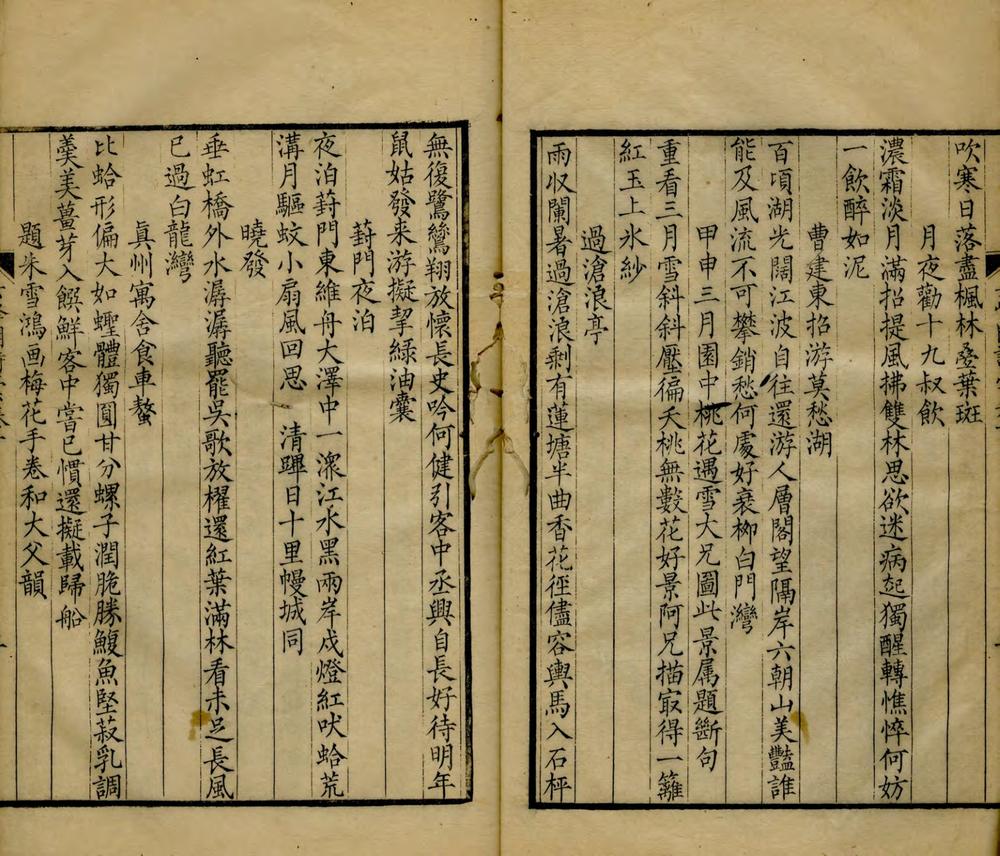 吹寒日落盡楓林叠葉斑
月夜勸十九叔飲
濃霜淡月滿招提風拂雙林思欲迷病起獨醒轉憔悴何妨
一飲醉如泥
曹建東招游莫愁湖
百頃湖光闊江波自往還游人層閣望隔岸六朝山美豔誰
能及風流不可攀銷愁何處好衰柳白門灣
甲申三月園中桃花遇雪大兄圖此景属題斷句
重看三月雪斜斜壓徧夭桃無數花好景阿兄描㝡得一籬
紅玉上氷紗
過滄浪亭
雨収闌暑過滄浪剩有蓮塘半曲香花徑儘容輿馬入石枰
無復鷺鷥翔放懷長史吟何健引客中丞興自長好待明年
鼠姑發来游擬挈綠油囊
葑門夜泊
夜泊葑門東維舟大澤中一潨江水黑兩岸戍燈紅吠蛤荒
溝月驅蚊小扇風回思　清蹕日十里幔城同
曉發
垂虹橋外水潺潺聽罷吳歌放櫂還紅葉滿林看未足長風
已過白龍灣
眞州寓舍食車螯
比蛤形偏大如蟶體獨圓甘分螺子潤脆勝鰒魚堅菽乳調
羹美薑芽入饌鮮客中嘗已慣還擬載歸船
題朱雪鴻画梅花手卷和大父韻